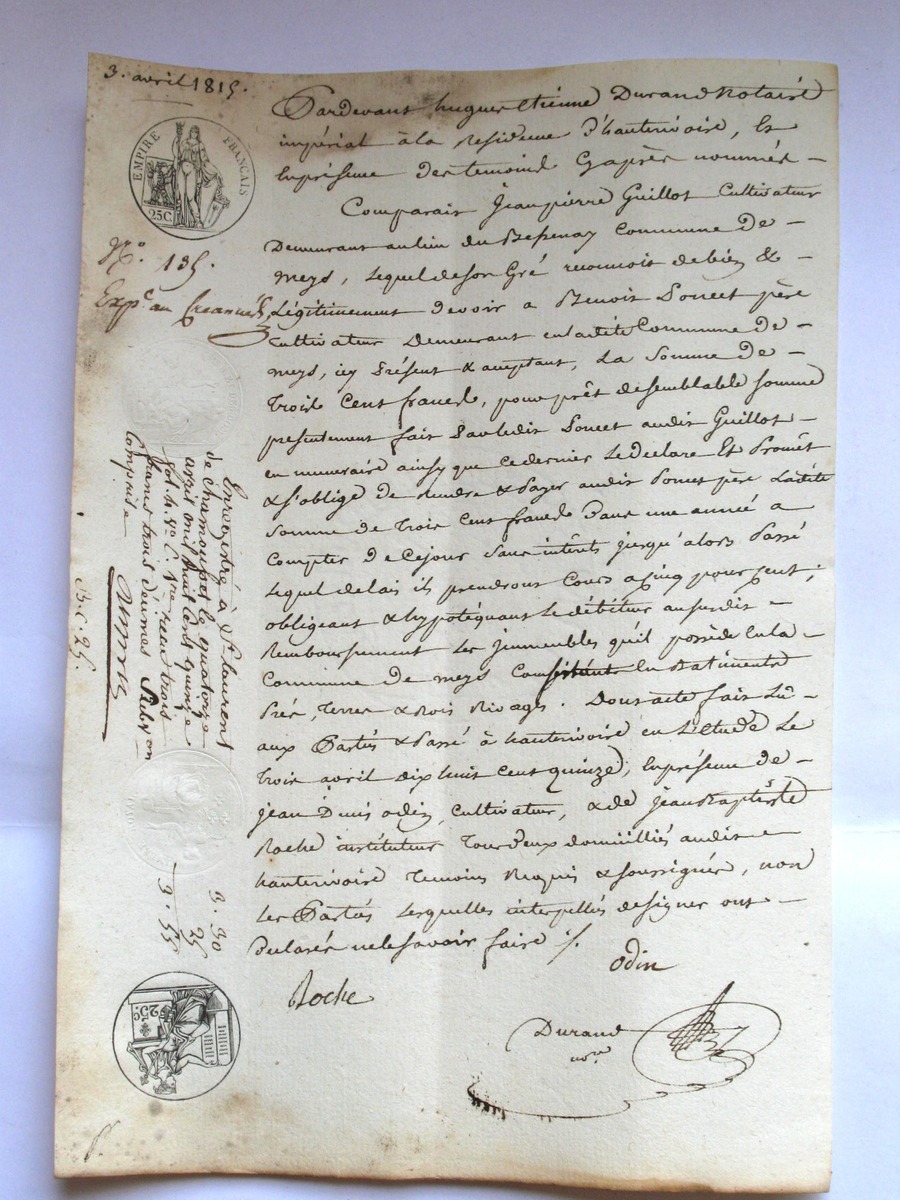 3. avril 1815.
EMPIRE FRANÇAIS
25C
No. 135.
Expe. au Creancier
Pardevant hugues Etienne Durand Notaire
impérial à la Residence d'hauterivoire, Et
Enprésence des temoins Cyaprès nommés –
Comparait Jean pierre Guillot Cultivateur
Demeurant au lieu du Bessenay Commune De –
meys, Lequel de son Gré reconnoit debien & –
Légitimement devoir a Benoit Poncet père
Cultivateur Demeurant enladite Commune de –
meys, icy Présent & acceptant, La Somme De –
Trois Cent francs, pour prêt desemblable somme
présentement fait Par ledit Poncet audit Guillot –
en numeraire ainsy que ce dernier Le Declare Et Promet
& s'oblige De Rendre & Payer audit Poncet père Ladite
Somme de Trois Cent francs Dans une année a
Compter De Cejour Sans intérets jusqu'alors Passé
Lequel delais ils prendrons Cours a Cinq pour Cent ;
obligeant & hypotéquant Le débiteur aususdit –
Remboursement Les immeubles qu'il possède en la –
Commune De meys Consistants En Batiments
Prés, Terres & Bois Rivages. Dont acte fait Lu –
aux Parties & Passé à hauterivoire en L'Etude Le
Trois avril dix huit cent quinze ; Enprésence de –
jean Denis odin, cultivateur, & de Jean Baptiste
Roche instituteur Tous Deux domiciliés audit –
hauterivoire Temoins Requis & soussignés, non
Les Parties Lesquelles interpellés designer ont –
Declarés ne le savoir faire ./.
odin
Roche
Durand
nore
Enregistré à St Laurent
de chamousset le quatorze
avril mil huit cent quinze
fol. 4. Vo C. 1re reçu trois
francs trois Decimes Subvon
Comprise
B. C. 25.
3. 30
25
3. 55
25C.